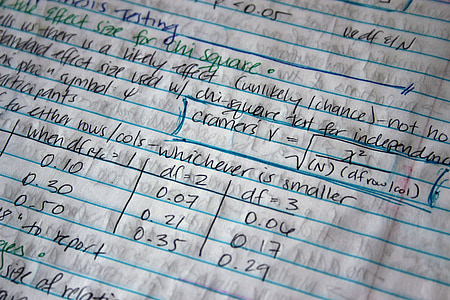 Testing
p < 0.05
use df & N
effect size for chi square.
tells us there is a likely effect (unlikely / chance) - not ho
standard effect size used w/ chi-square test for independence
symbol
cramers V = √ χ² / (N)(df row/col)
for either rows/cols - whichever is smaller
when df = 1 | df = 2 | df = 3
0.10 | 0.07 | 0.06
0.30 | 0.21 | 0.17
0.50 | 0.35 | 0.29
to report
size of relati